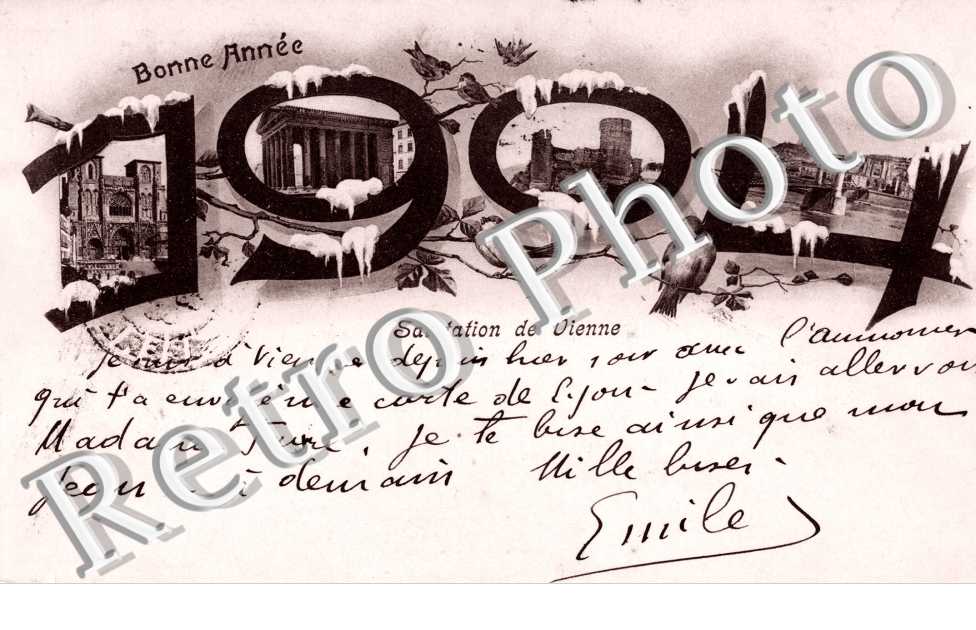 Bonne Année
1904
Salutation de Vienne
Je suis à Vienne depuis hier soir avec l'aumonier
qui t'a envoyé une carte de Lyon. Je vais aller voir
Madame je te bise ainsi que mon
Jean à demain Mille bises.
Emile
Retro Photo